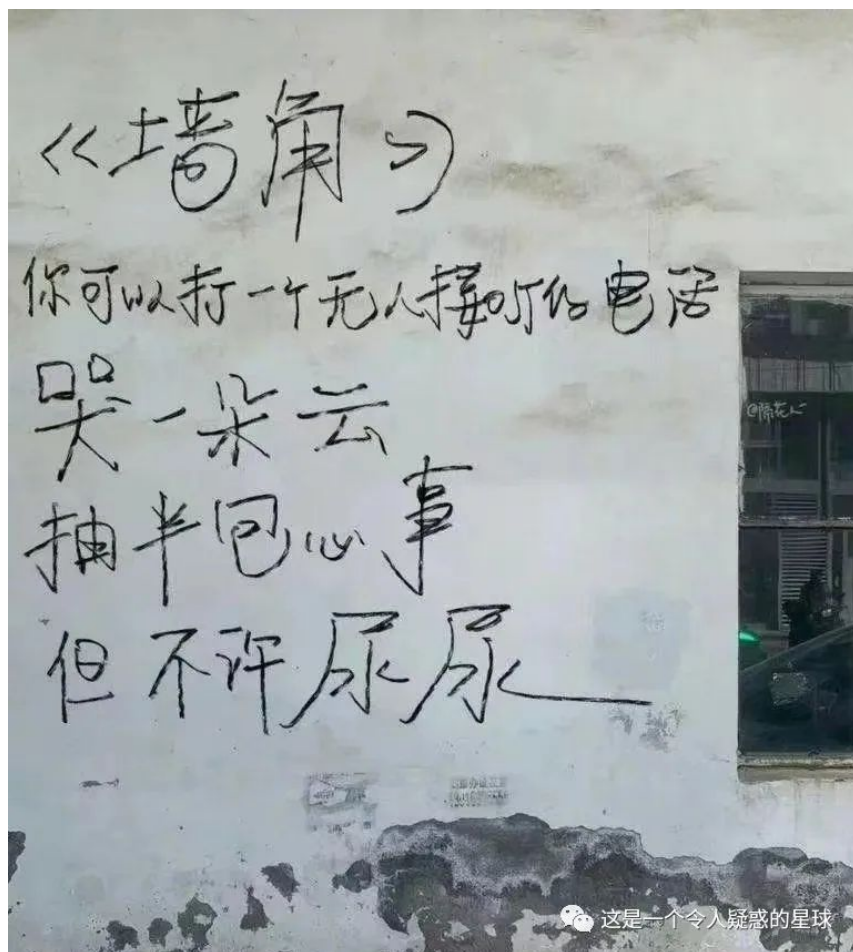 《墙角》
你可以打一个无人接听的电话
哭一朵云
抽半包心事
但不许尿尿
这是一个令人疑惑的星球